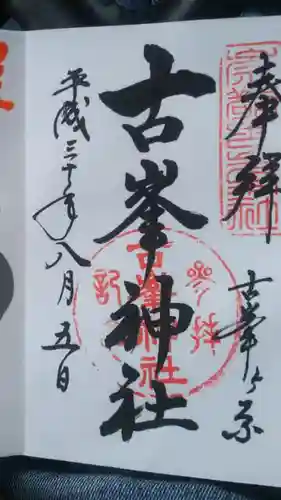 奉拝
古峯ヶ原
古峯神社
平成三十年八月五日
古峯神社
参拝
記